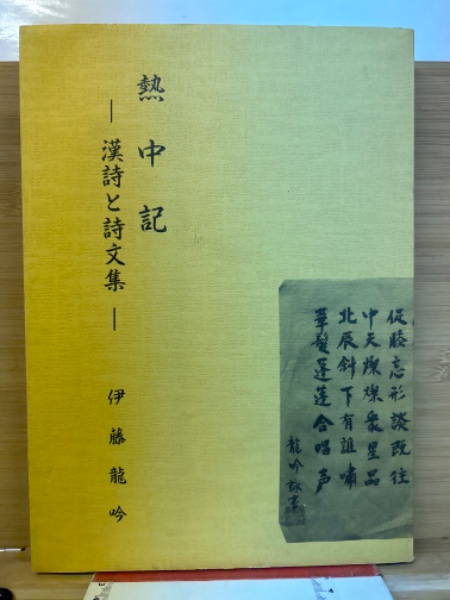 熱中記
―漢詩と詩文集―
伊藤龍吟
促膝忘形談既往
中天燦燦衆星品
北辰斜下有誰嘯
華髪蓬蓬合唱声
龍吟詠草